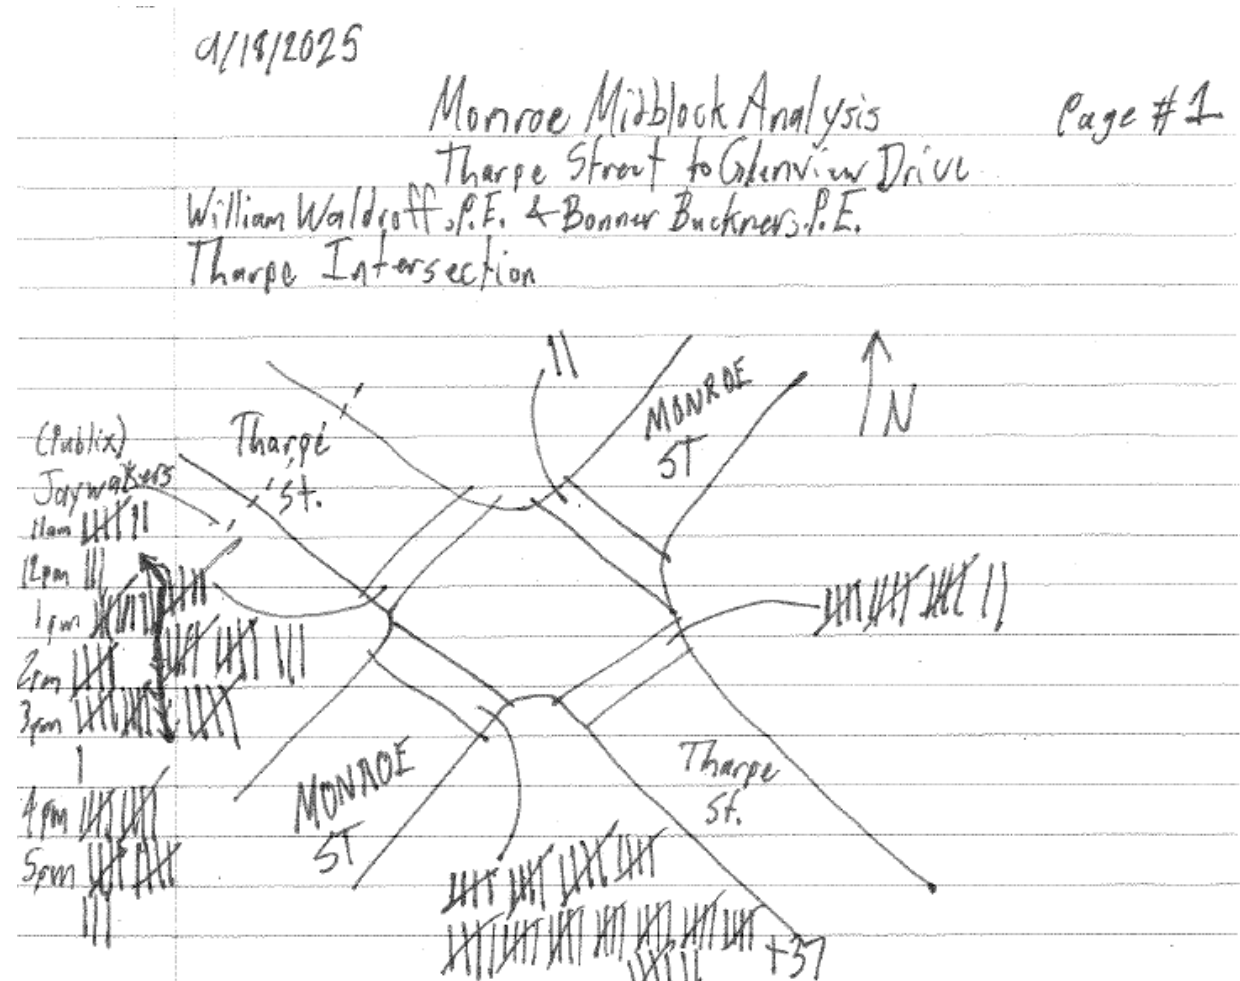 9/18/2025
Monroe Midblock Analysis
Page #1
Tharpe Street to Glenview Drive
William Waldroff, P.E. & Bonner Buckner, P.E.
Tharpe Intersection
N
MONROE
ST
(Publix)
Jaywalkers
Tharpe
St.
11am
12pm
1pm
2pm
3pm
4pm
5pm
MONROE
ST
Tharpe
St.
+37